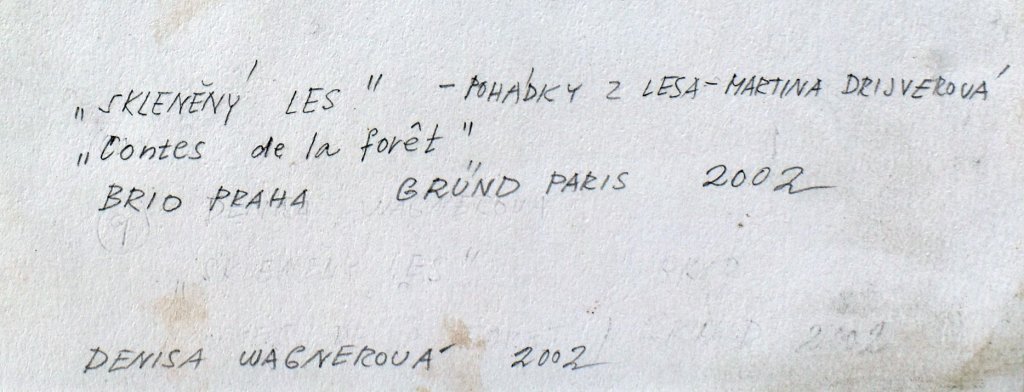 „SKLENĚNÝ LES" - POHÁDKY Z LESA - MARTINA DRIJVEROVÁ
„Contes de la forêt"
BRIO PRAHA GRÜND PARIS 2002
DENISA WAGNEROVÁ 2002